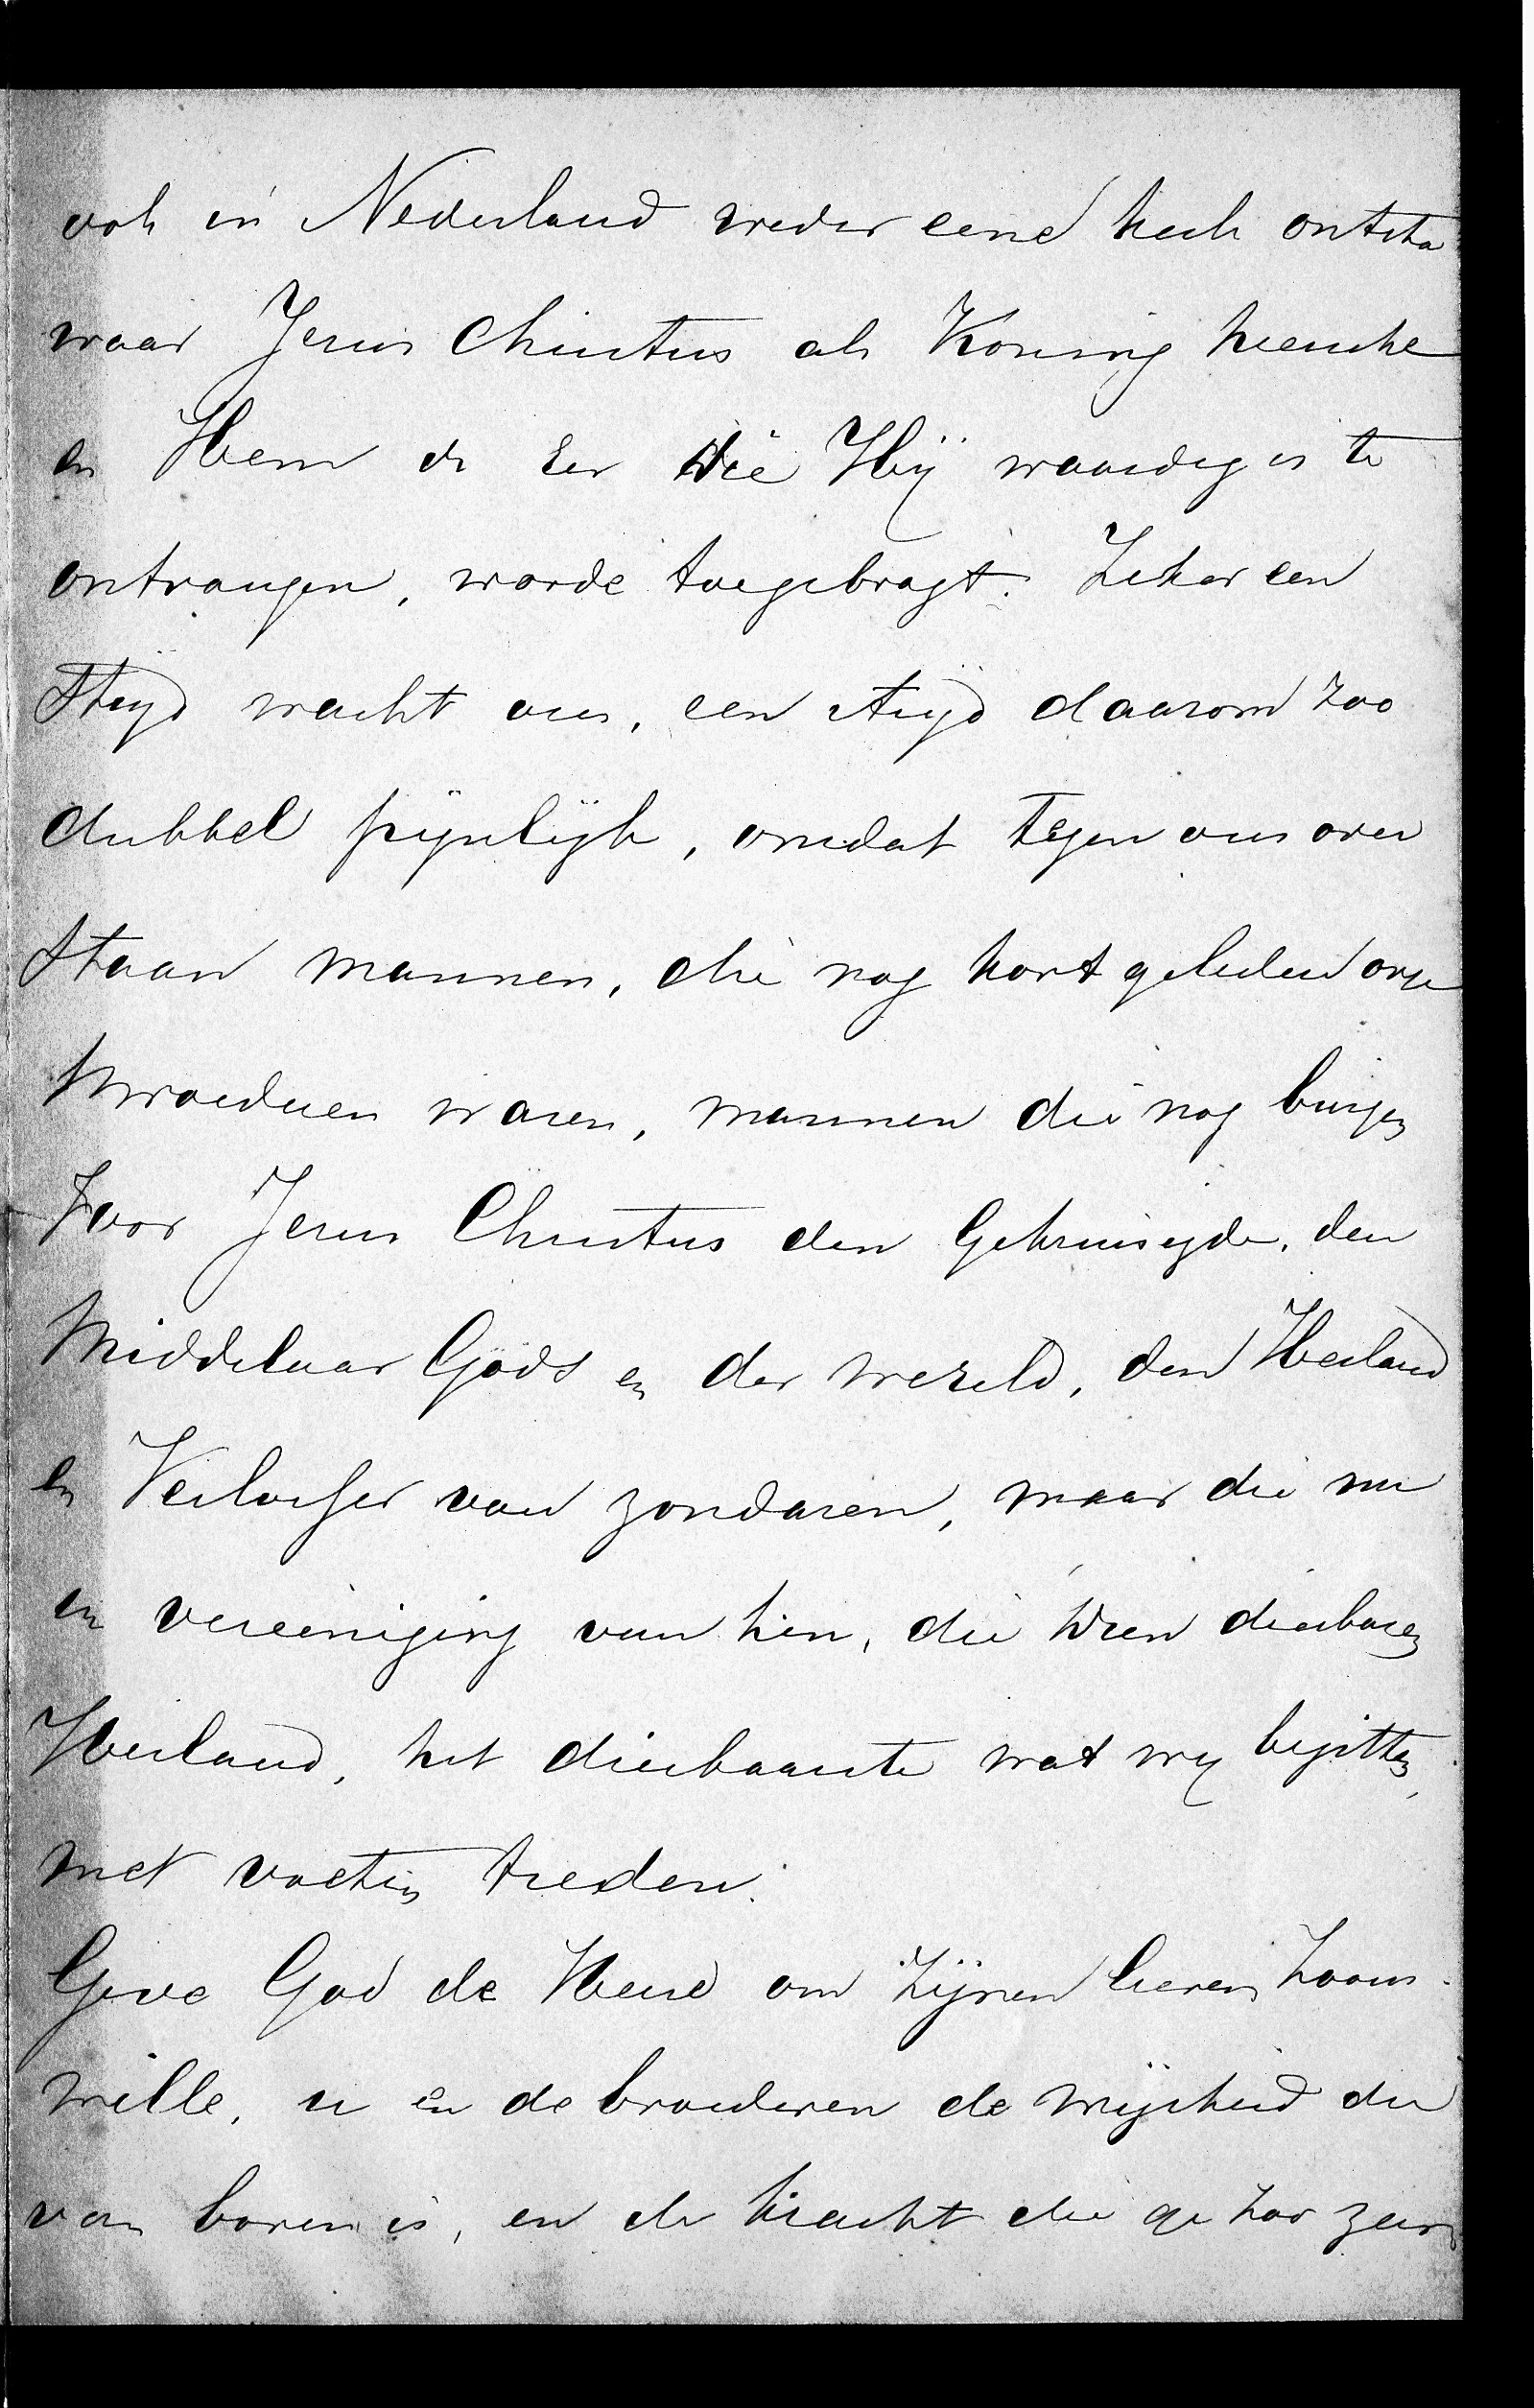 ook in Nederland weder eene kerk ontsta
waar Jesus Christus als Koning heersche
en Hem de Eer die Hij waardig is te
ontvangen, worde toegebragt. Zeker een
Strijd wacht ons, een strijd daarom zoo
dubbel pijnlijk, omdat tegen ons over
staan mannen, die nog kort geleden onze
broederen waren, mannen die nog bogen
voor Jesus Christus den Gekruisigde, den
Middelaar Gods en der wereld, den Heiland
en Verlosser van zondaren, maar die nu
in vereeniging van hen, die dien dierbaren
Heiland, het dierbaarste wat wy bezitten,
met voeten treden.
Geve God de Heere om Zijnen lieven Zoons
wille, u en de broederen de wijsheid die
van boven is, en de kracht die ge zoo zeer